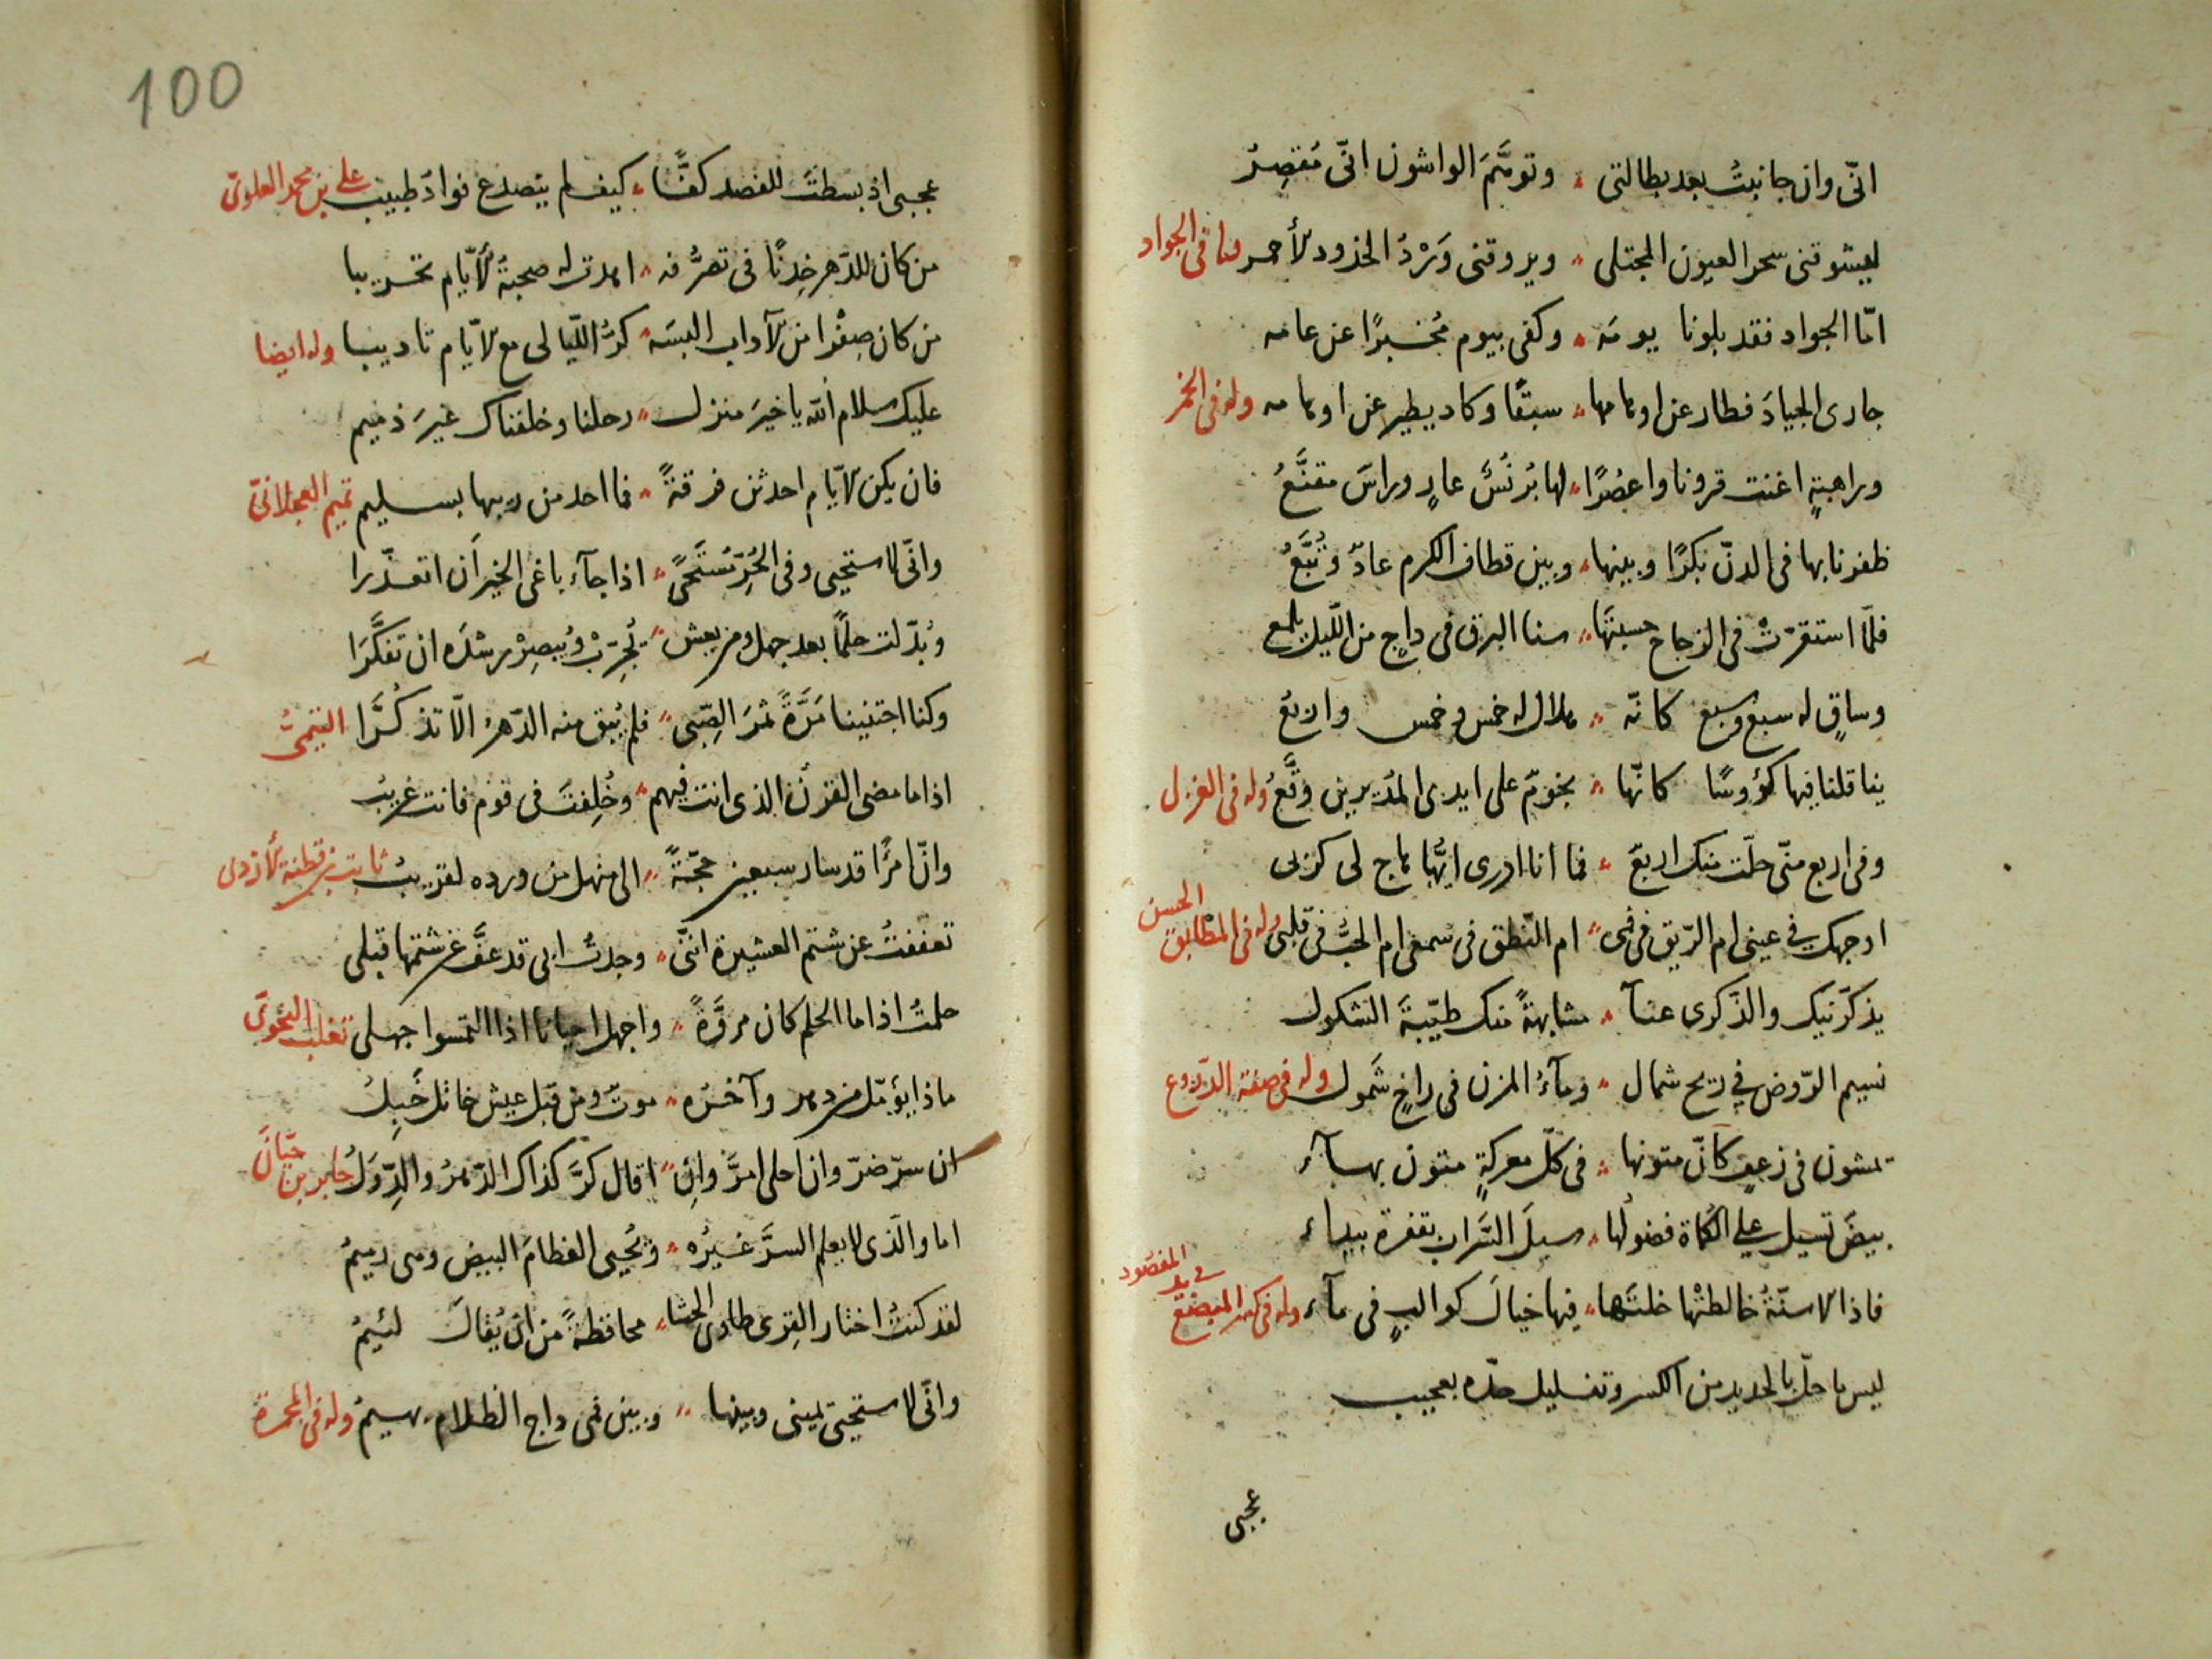 انّى وان جانبتُ بعد بطالتى ؞ وتوهَّمَ الواشون انّى مُقصِرُ
ليشوقنى سحر العيون المجتلى ؞ ويروقنى وَرْدُ الخدود الأحمر وله فى الجواد
امّا الجواد فقد بلونا يومَه ؞ وكفى بيوم مُخبرًا عن عامه
جارى الجيادَ فطار عن اوهامها ؞ سبقًا وكاد يطير عن اوهامه وله فى الخمر
وراهبةٍ افنت قرونا واعصُرًا ؞ لها بُرنُسٌ عارٍ وراسٌ مقنَّعُ
ظفرنا بها فى الدنّ بكرًا وبينها ؞ وبين قطاف الكرم عادٌ وتُبَّعُ
فلمّا استقرّتْ فى الزجاج حسبتَها ؞ سنا البرق فى داجٍ من الليل يلمع
وساقٍ له سبع وسبع كانّه ؞ هلال له خمس وخمس واربعُ
يناقلنا فيها كؤوسًا كانّها ؞ نجومٌ على ايدى المُديرين وقَّعُ وله فى الغزل
وفى اربع منّى حلّت منك اربعٌ ؞ فما انا ادرى ايُّها هاج لى كربى
اوجهك فى عينى ام الرّيق فى فمى ؞ ام النّطق فى سمعى ام الحبُّ فى قلبى وله فى المطابق الحسن
يذكّرنيك والذّكرى عنآ ؞ مشابهةٌ منك طيّبةُ الشكول
نسيم الرّوض فى ريح شمال ؞ ومآءُ المزن فى راحٍ شَمول وله فى صفة الدّروع
يمشون فى زعفٍ كانّ متونها ؞ فى كلّ معركةٍ متون نهآء
بيضٌ تسيل على الكماة فضولُها ؞ سيلَ السَّراب بقفرة بيداء
فاذا الاسنّةُ خالطتْها خلتَها ؞ فيها خيالَ كواكبٍ فى مآء وله فى كسر المبضع فى يد المفصود
ليس ما حلّ بالحديد من الكسر وتفليل حدّه بعجيب
عجبى
100
عجبى اذ بسطتَ للفصد كفًّا ؞ كيف لم يتصدع فوادُ طبيب على بن محمد العلوىّ
من كان للدّهر خِدنًا فى تصرُّفه ؞ ابدت له صحبةُ الأيّام تجريبا
من كان صِفْرا من الآداب البسَه ؞ كرُّ اللّيالى مع الايّام تاديبا وله ايضا
عليك سلام الله يا خيرَ منزل ؞ رحلنا وخلفناك غيرَ ذميم
فان يكن الايّام احدثن فرقةً ؞ فما احد من ريبها بسليم تميم العجلانىّ
وانّى لاستحيى وفى الحُرّ مُستَحًى ؞ اذا جآء باغى الخير اَن اتعذّرا
وبُدّلت حلمًا بعد جهل ومن يعش ؞ يُجرّبْ ويُبصِرْ رشدَه ان تفكَّرَا
وكنا اجتنينا مَرّةً ثمرَ الصّبى ؞ فلم يُبق منه الدّهرُ الّا تذكُّرَا التيمىُّ
اذا ما مضى القرنُ الذى انت فيهم ؞ وخُلِفتَ فى قوم فانت غريبُ
وانّ امرًا قد سار سبعين حجّةً ؞ الى منهل من ورده لقريبُ ثابت بن قطنة الأزدى
تعففتُ عن شتم العشيرة انّنى ؞ وجدتُ ابى قد عفّ عن شتمها قبلى
حلمتُ اذا ما الحلم كان مروَّةً ؞ واجهل احيانا اذا التمسوا جهلى ثعلب النّحوىّ
ماذا يؤمّل من دهر وآخره ؞ موتٌ ومن قبل عيش خاتلٌ خَبِلُ
ان سرّ ضرّ وان احلى امرَّ وان ؞ اقال كرَّ كذاك الدّهرُ والدّولُ جابر بن حيّان
اما والّذى لا يعلم السرَّ غيرُه ؞ ويُحيى العظامَ البيض وهى رميمُ
لقد كنتُ اختار القِرى طاوىَ الحشا ؞ محافظةً من ان يُقالَ لئيمُ
وانّى لاستحيى يمينى وبينها ؞ وبين فمى داج الظلام بهيمُ وله فى المحمرة